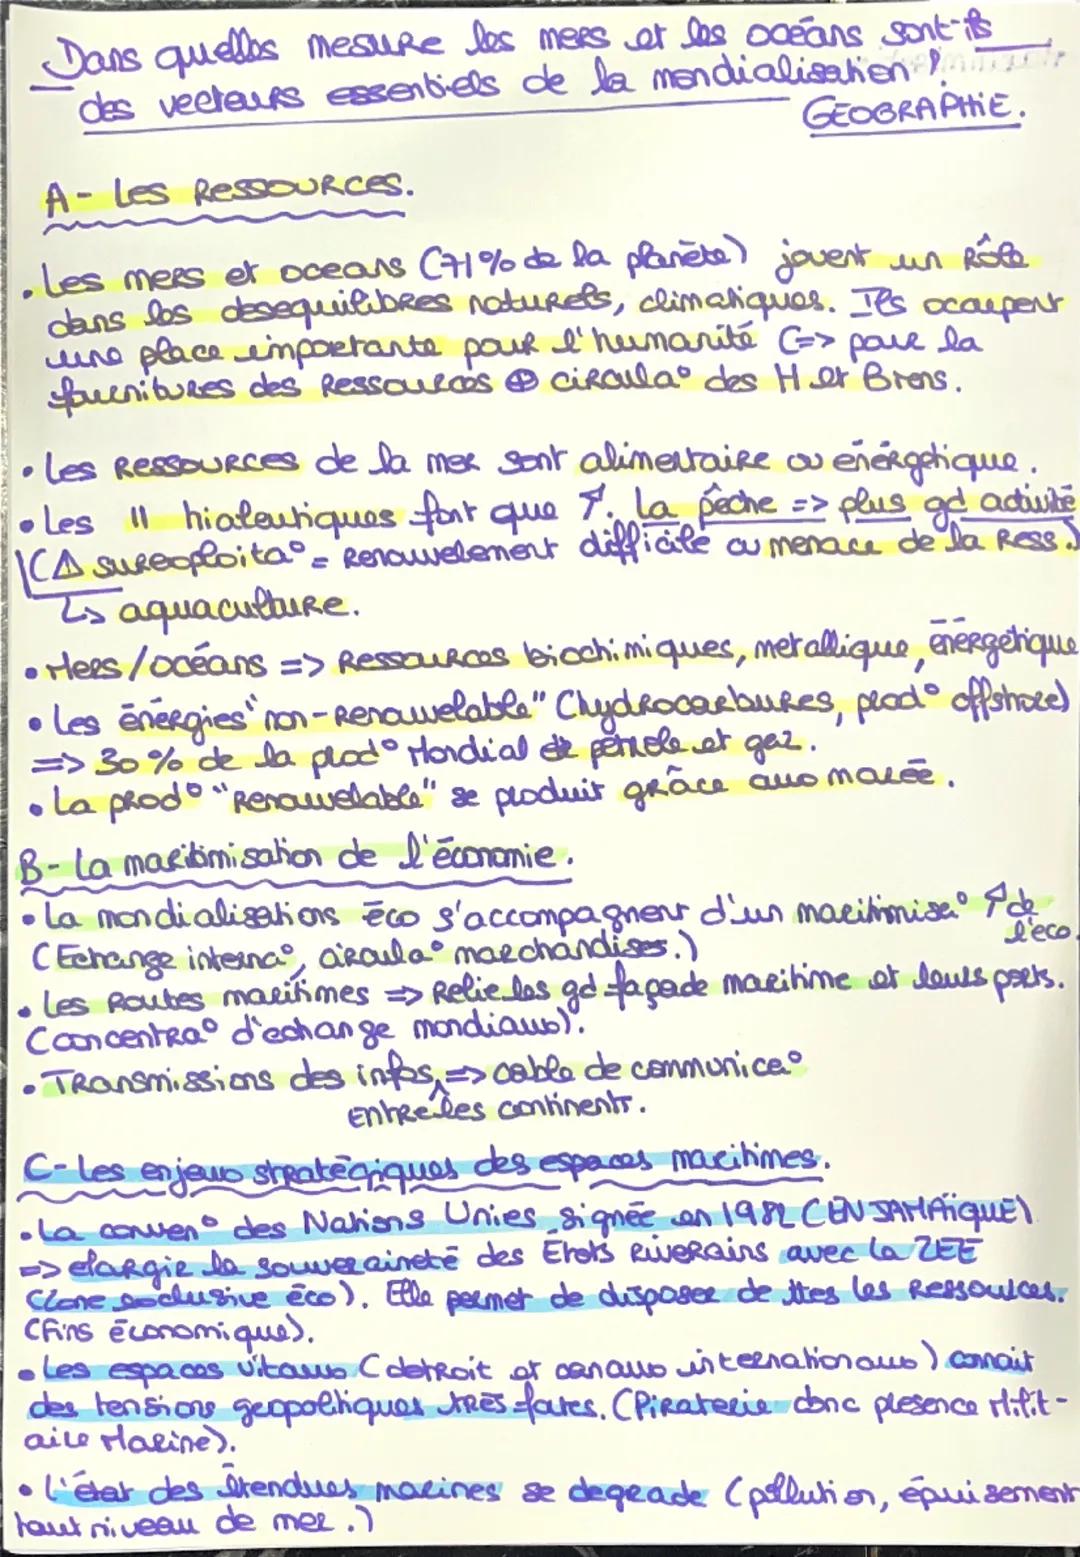 Dans quelles mesure les mers et les océans sont-ils
des vecteurs essentiels de la mondialisation ?
GEOGRAPHIE.
A- Les Ressources.
• Les mers et oceans (71% de la planète) jouent un Rôle
dans les desequilibres naturels, climatiques. Ils occupent
une place importante pour l'humanité (=> pour la
fournitures des Ressources ⊕ circula° des H et Biens.
• Les Ressources de la mer sont alimentaire ou énérgetique.
• Les " halieutiques font que ↗. La pêche => plus gd activité
(⚠ surexploita° = Renouvelement difficile ou menace de la Ress.)
↳ aquaculture.
• Mers/océans => Ressources biochimiques, metallique, énergétique
• Les énergies "non-Renouvelable" (hydrocarbures, prod° offshore)
=> 30% de la prod° Mondial de pétrole et gaz.
• La prod° "Renouvelable" se produit grâce aux marée.
B- La maritimisation de l'économie.
• La mondialisations éco s'accompagnent d'un maritimisa° ↗ de
l'eco.
(Echange interna°, circula° marchandises.)
• Les Routes maritimes => Relie les gd façade maritime et leurs ports.
(concentra° d'echange mondiaux).
• Transmissions des infos, => cable de communica°
entre les continents.
C- Les enjeux stratégiques des espaces maritimes.
• La conven° des Nations Unies signée en 1982 (EN JAMAÏQUE)
=> elargie la souveraineté des États Riverains avec la ZEE
(Zone exclusive éco). Elle permet de disposer de ttes les Ressources.
(fins économique).
• Les espaces vitaux (detroit et canaux internationaux) connait
des tensions geopolitiques très fortes. (Piraterie donc présence Milit-
aire Marine).
• L'état des étendues marines se degrade (pollution, épuisement
haut niveau de mer.)